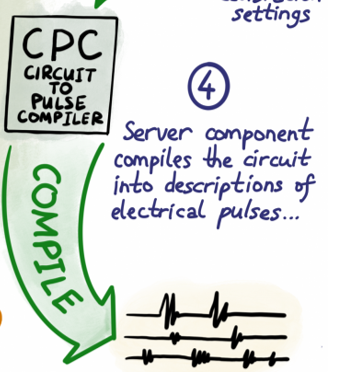 settings
CPC
CIRCUIT
TO
PULSE
COMPILER
4
Server component
compiles the circuit
into descriptions of
electrical pulses...
COMPILE